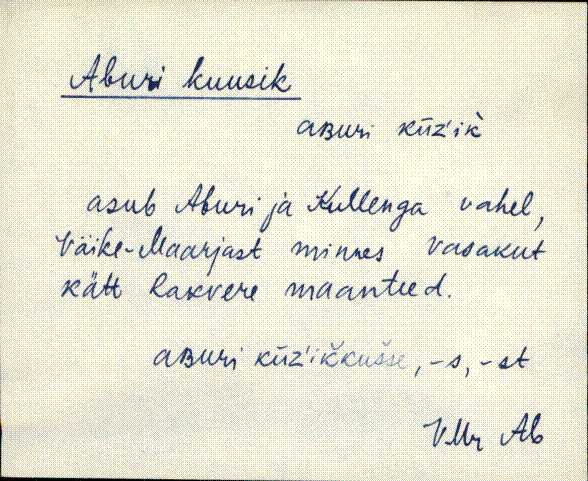 Aburi kuusik
aʙuri kūz'ik̀
asub Aburi ja Kullenga vahel,
Väike-Maarjast minnes vasakut
kätt Rakvere maanteed.
aʙuri kūz'ikkusse, -s, -st
VMr Ab